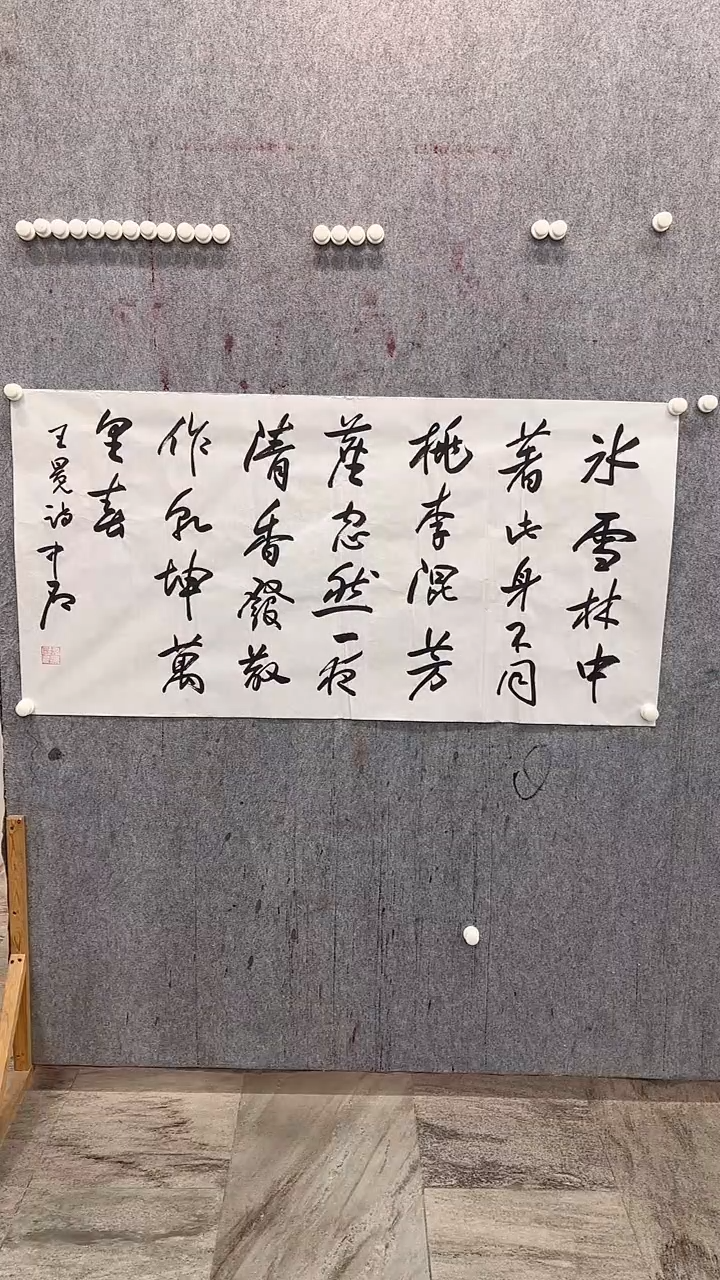 冰雪林中
著此身不同
桃李混芳
塵忽然一夜
清香發散
作乾坤萬
里春
王冕詩